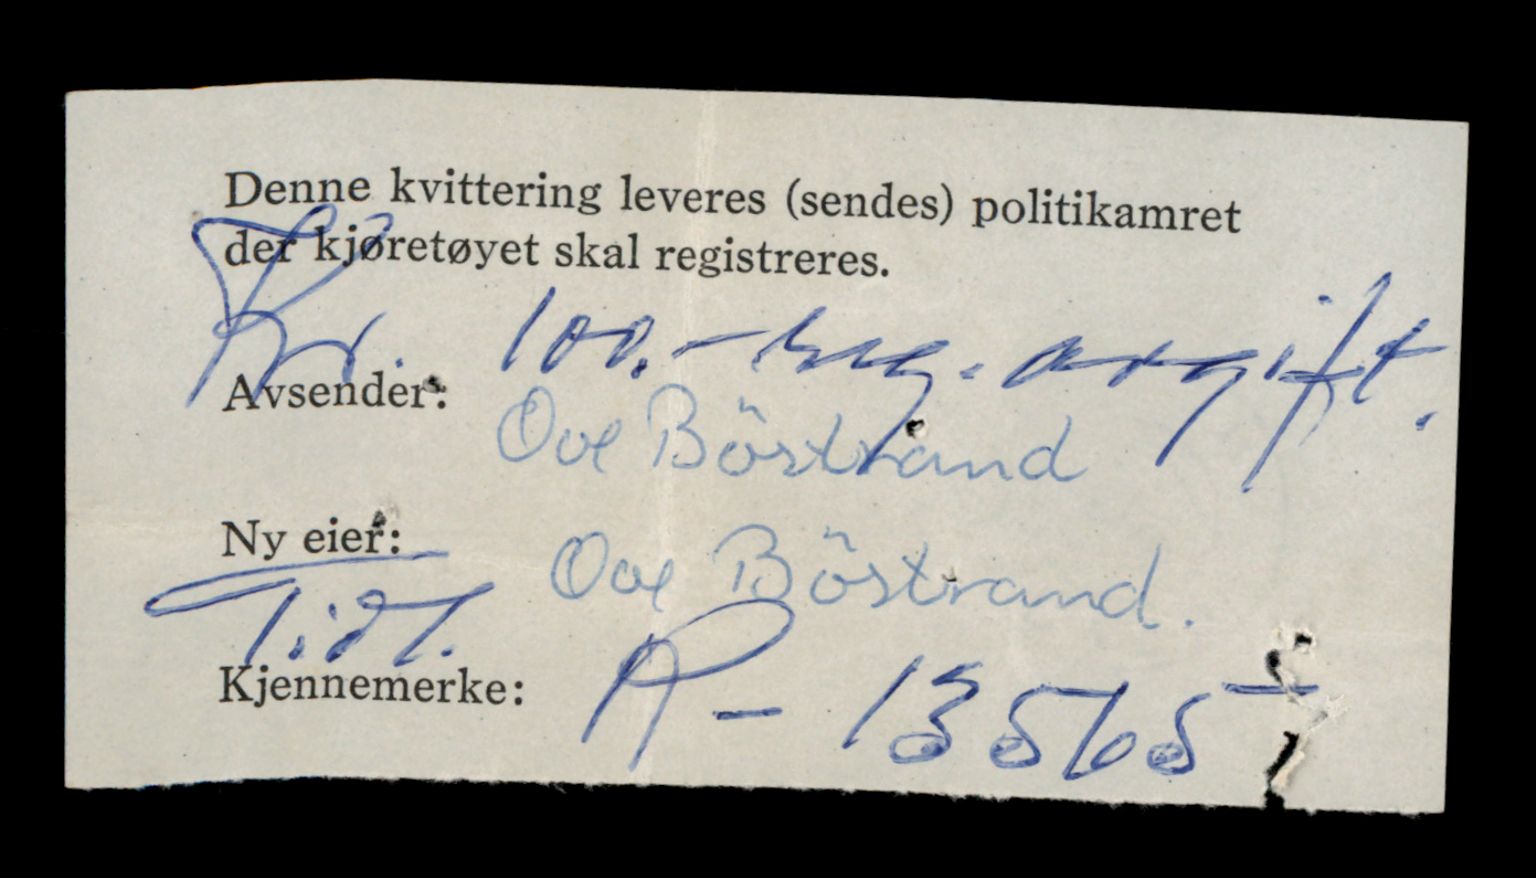 Denne kvittering leveres (sendes) politikamret
der kjøretøyet skal registreres.
Kr. 100.- reg. avgift.
Avsender: Ove Böstrand
Ny eier: Ove Böstrand.
Tidl.
Kjennemerke: R - 13565